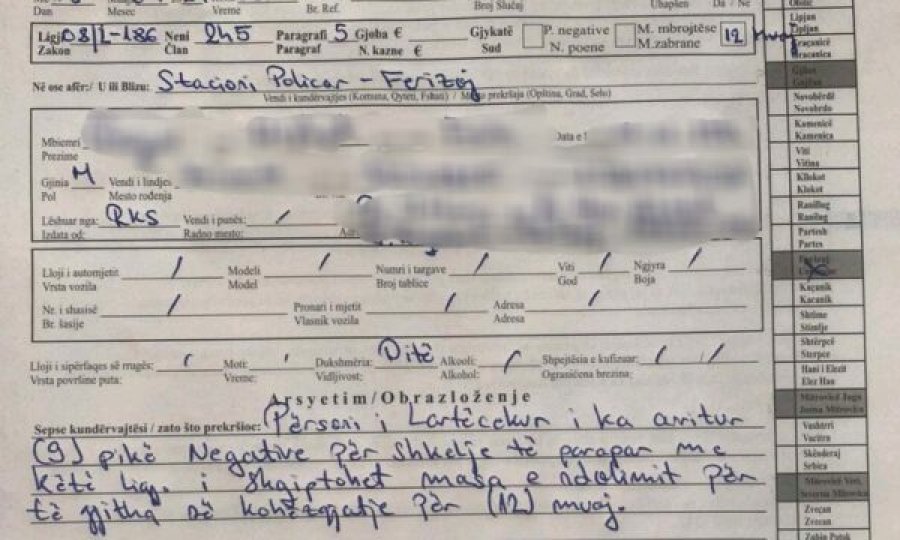 Dan Mesec Vreme Br. Ref. Broj Slučaj Ubapšen Da / Ne
Ligji 08/L-186 Neni 245 Paragrafi 5 Gjoba € Gjykatë P. negative M. mbrojtëse 12 muaj
Zakon Član Paragraf N. kazne € Sud N. poene M.zabrane
Në ose afër:/ U ili Blizu: Stacioni Policor - Ferizaj
Vendi i kundërvajtjes (Komuna, Qyteti, Fshati) / Mesto prekršaja (Opština, Grad, Selo)
Mbiemri
Prezime
Gjinia M Vendi i lindjes
Pol Mesto rođenja
Lëshuar nga: RKS Vendi i punës: /
Izdata od: Radno mesto:
Lloji i automjetit / Modeli / Numri i targave / Viti / Ngjyra /
Vrsta vozila Model Broj tablice God Boja
Nr. i shasisë / Pronari i mjetit / Adresa /
Br. šasije Vlasnik vozila Adresa
Lloji i sipërfaqes së rrugës: / Moti: / Dukshmëria: Ditë Alkooli: / Shpejtësia e kufizuar: / /
Vrsta površine puta: Vreme: Vidljivost: Alkohol: Ograničena brzina:
Arsyetim/Obrazloženje
Sepse kundërvajtësi / zato što prekršioc: Përsoni i Lartëcekur i ka arritur
(9) pikë Negative për shkelje të parapar me
këtë ligj. i shqiptohet masa e ndalimit për
të gjitha në kohëzgjatje për (12) muaj.
Lipjan
Lipljan
Graçanicë
Gracanica
Novobërdë
Novobrdo
Kamenicë
Kamenica
Viti
Vitina
Kllokot
Klokot
Ranillug
Ranilug
Partesh
Partes
Kaçanik
Kacanik
Shtime
Stimlje
Shtërpcë
Sterpce
Hani i Elezit
Elez Han
Mitrovicë Jugu
Juzna Mitrovica
Vushtrri
Vucitrn
Skënderaj
Srbica
Mitrovicë Veri,
Severna Mitrovica
Zveçan
Zvecan
Zubin Potok